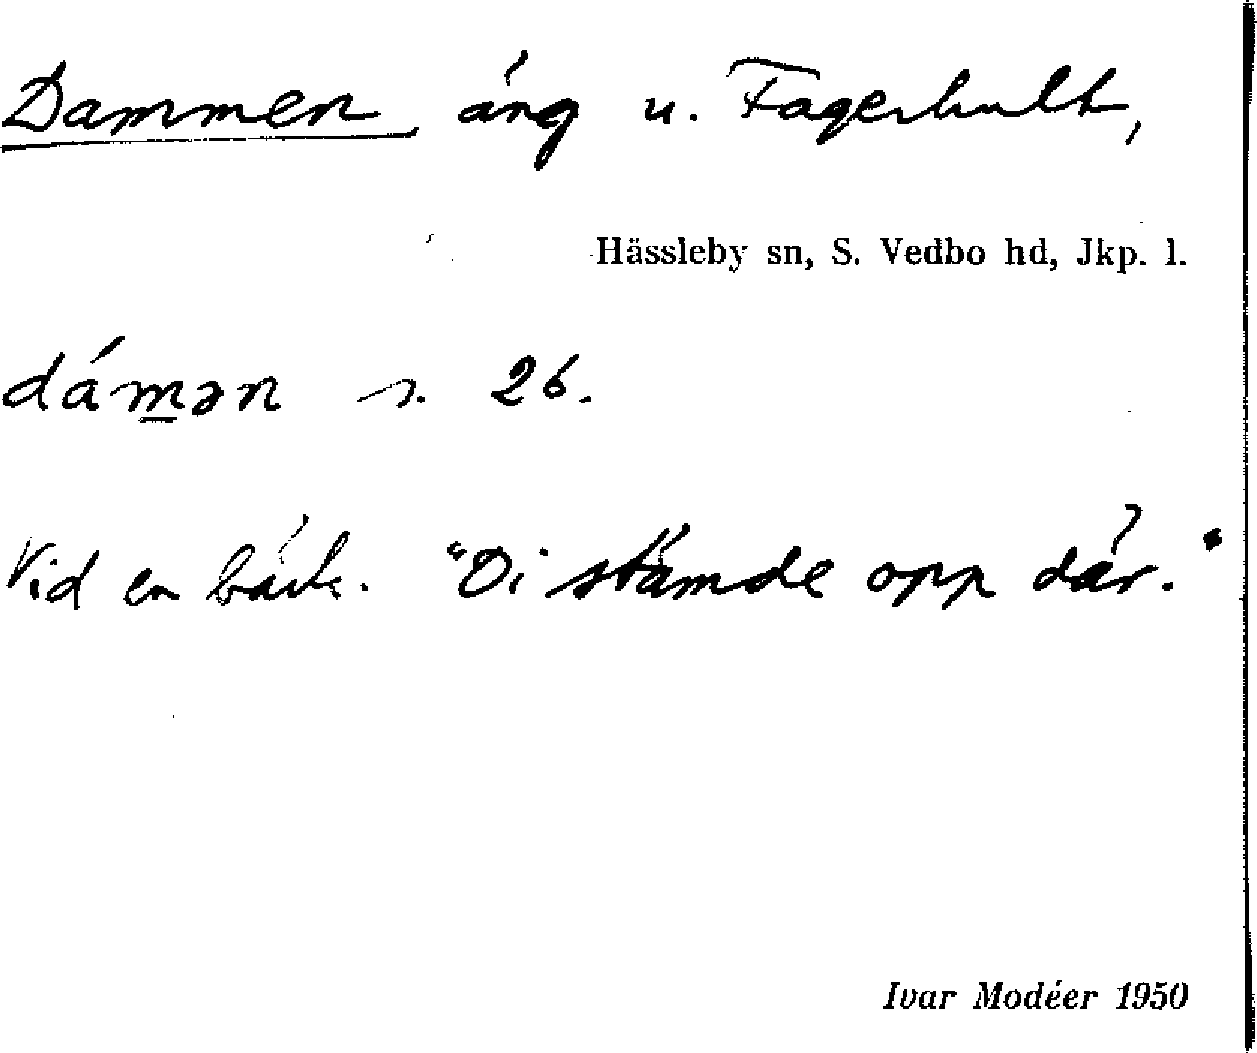 Dammen, äng u. Fagerhult,
Hässleby sn, S. Vedbo hd, Jkp. l.
dámən s. 26.
Vid en bäck. "Di stämde opp där."
Ivar Modéer 1950